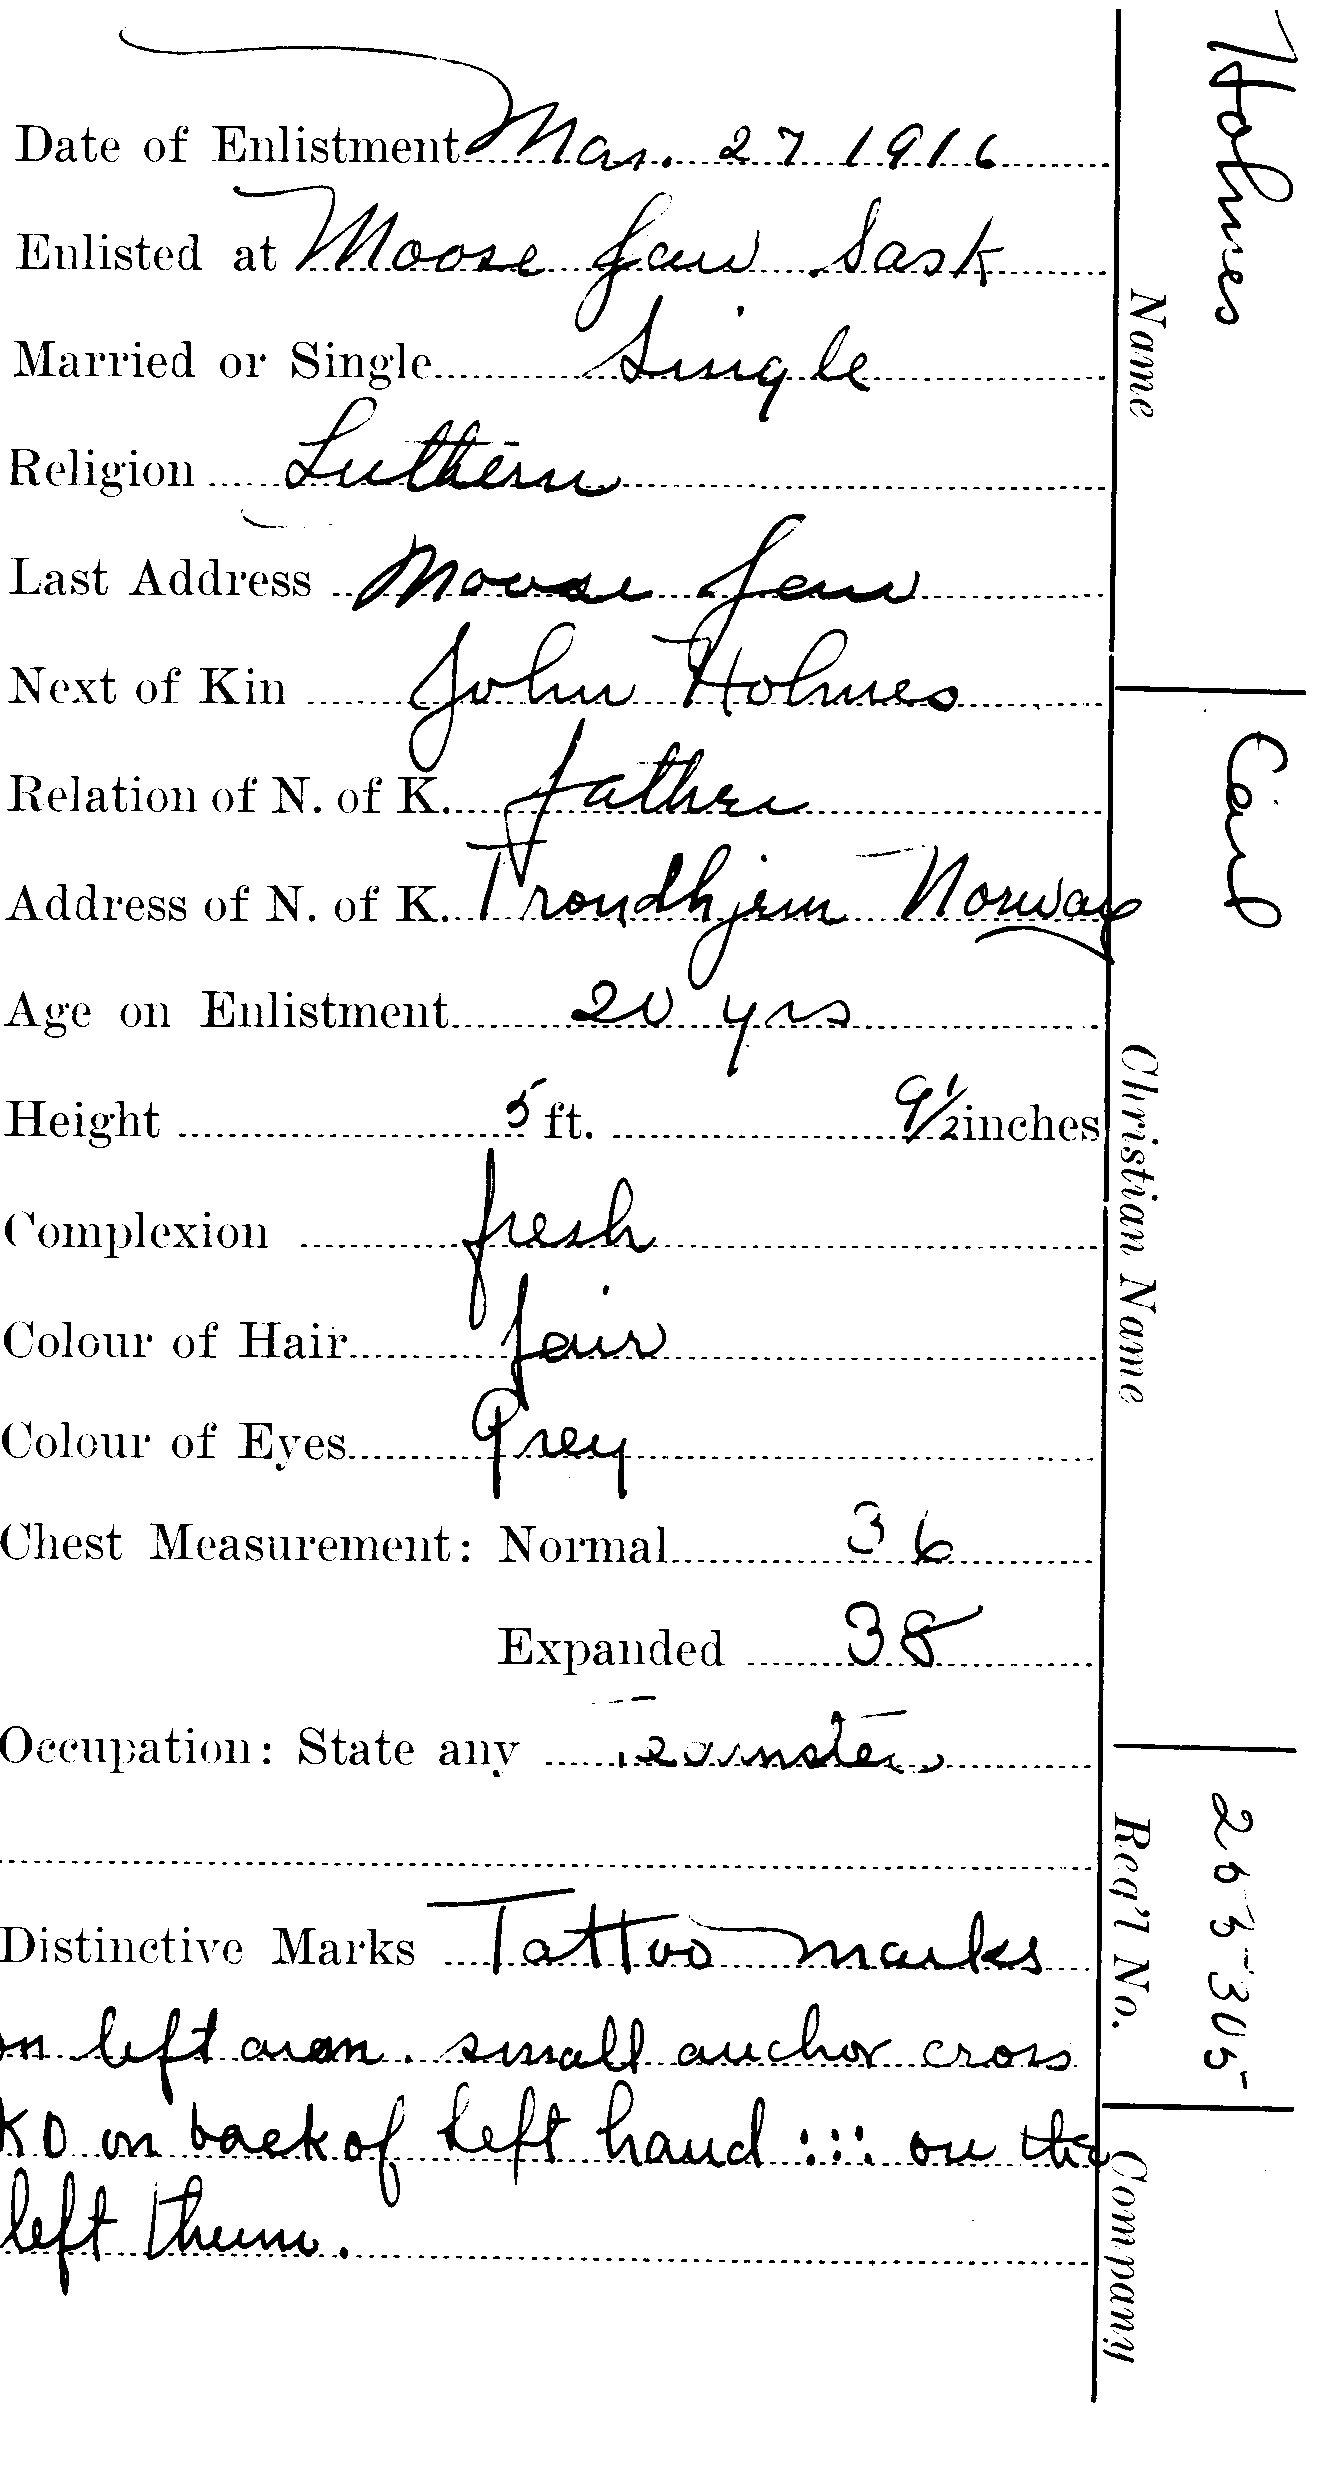 Date of Enlistment Mar. 27 1916
Enlisted at Moose Jaw Sask
Married or Single Single
Religion Luthern
Last Address Moose Jaw
Next of Kin John Holmes
Relation of N. of K. father
Address of N. of K. Trondhjem Norway
Age on Enlistment 20 yrs
Height 5 ft. 9 1/2 inches
Complexion fresh
Colour of Hair fair
Colour of Eyes Grey
Chest Measurement: Normal 36
Expanded 38
Occupation: State any Teamster
Distinctive Marks Tattoo marks
on left arm. small anchor cross
KD on back of left hand ::: on the
left thum.
Holmes
Name
Carl
Christian Name
Reg'l No.
Company